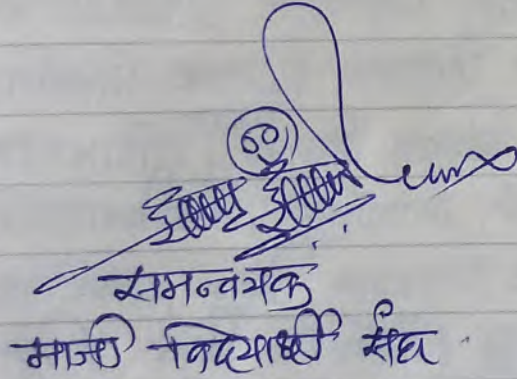 समन्वयक
माजी विद्यार्थी संघ.